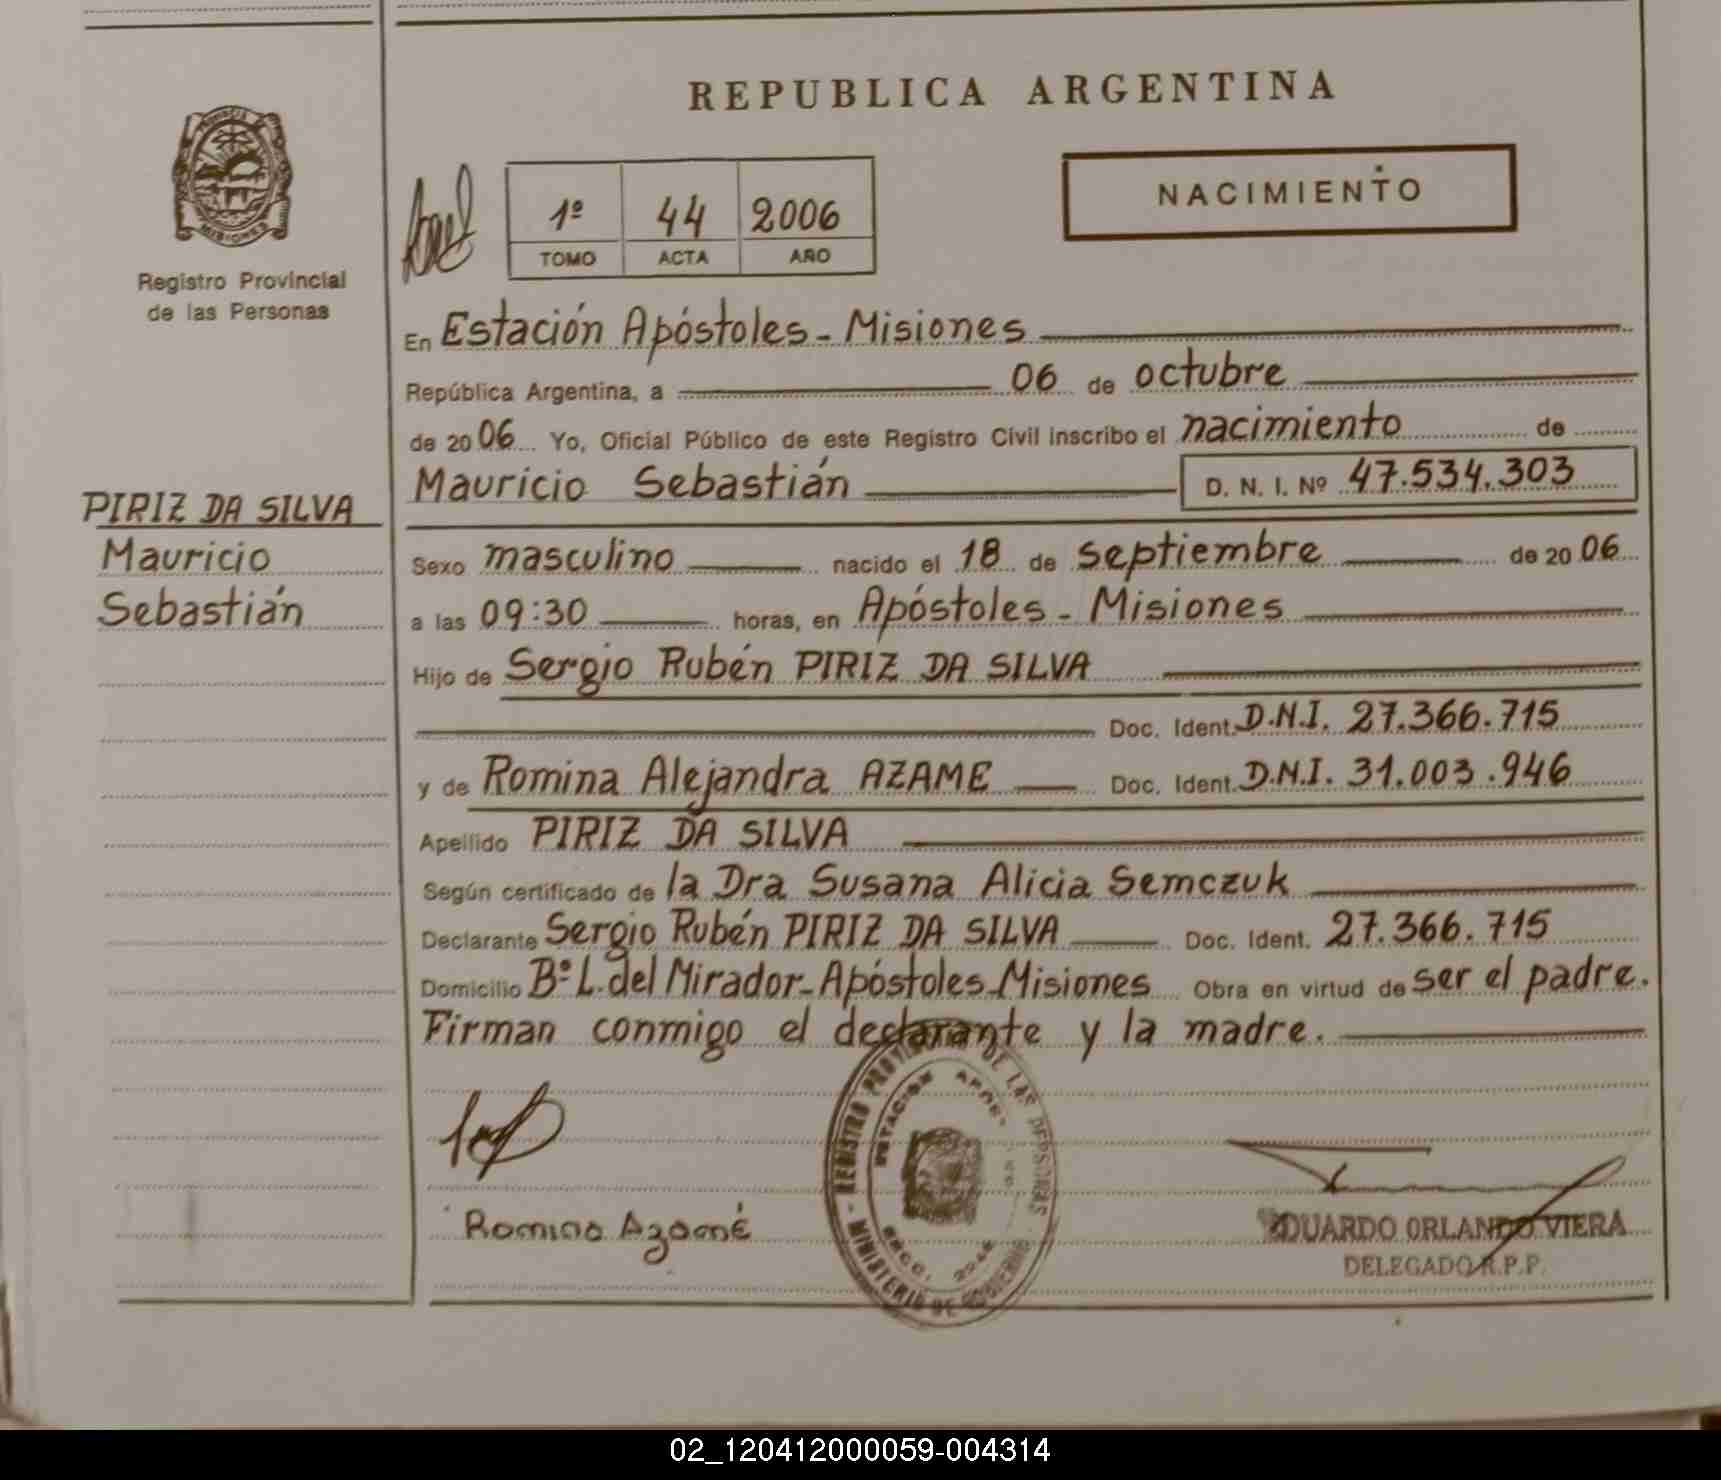 REPUBLICA ARGENTINA
NACIMIENTO
1º 44 2006
TOMO ACTA AÑO
Registro Provincial
de las Personas
MISIONES
En Estación Apóstoles - Misiones
República Argentina, a 06 de octubre
de 2006 Yo, Oficial Público de este Registro Civil inscribo el nacimiento de
Mauricio Sebastián D. N. I. Nº 47.534.303
PIRIZ DA SILVA
Mauricio
Sebastián
Sexo masculino nacido el 18 de septiembre de 2006
a las 09:30 horas, en Apóstoles - Misiones
Hijo de Sergio Rubén PIRIZ DA SILVA
Doc. Ident. D.N.I. 27.366.715
y de Romina Alejandra AZAME Doc. Ident. D.N.I. 31.003.946
Apellido PIRIZ DA SILVA
Según certificado de la Dra Susana Alicia Semczuk
Declarante Sergio Rubén PIRIZ DA SILVA Doc. Ident. 27.366.715
Domicilio Bº L. del Mirador - Apóstoles - Misiones Obra en virtud de ser el padre.
Firman conmigo el declarante y la madre.
Romina Azamé
REGISTRO PROVINCIAL DE LAS PERSONAS
MINISTERIO DE GOBIERNO
ESTACIÓN
EDUARDO ORLANDO VIERA
DELEGADO R.P.P.
02_120412000059-004314